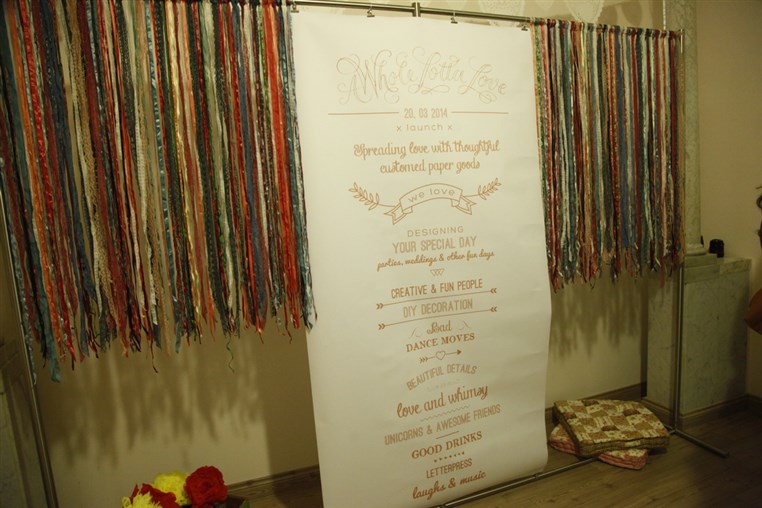 Whole Lotta Love
20. 03 2014
x launch x
Spreading love with thoughtful
customed paper goods
we love
DESIGNING
YOUR SPECIAL DAY
parties, weddings & other fun days
CREATIVE & FUN PEOPLE
DIY DECORATION
Bad
DANCE MOVES
BEAUTIFUL DETAILS
love and whimsy
UNICORNS & AWESOME FRIENDS
GOOD DRINKS
LETTERPRESS
laughs & music